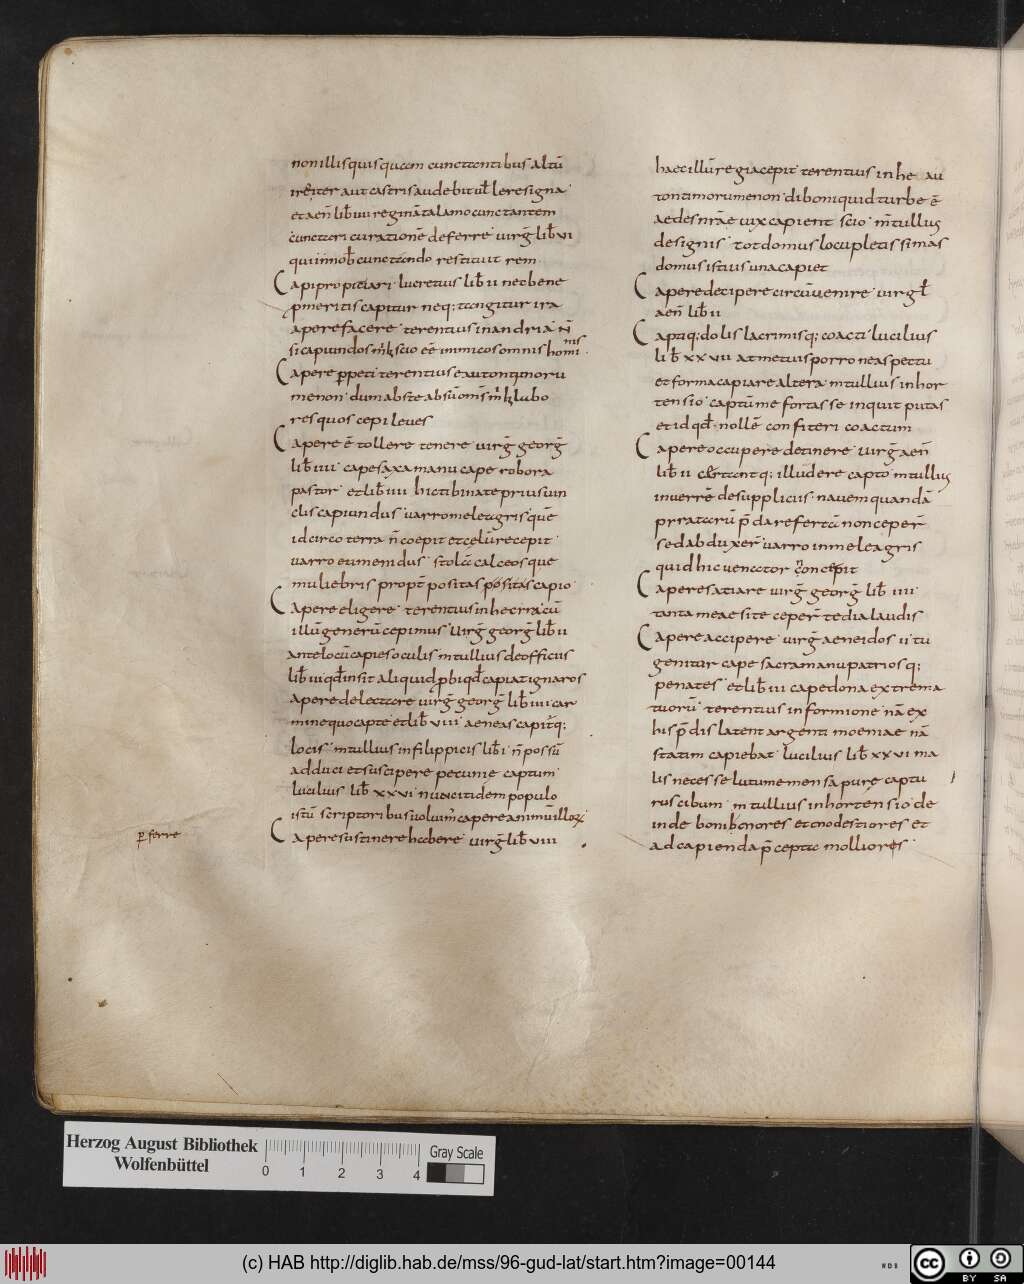 non illis quisquam cunctantibus altū
ire iter aut castris audebit ul̄ lere signa
et aen̄ lib̄ iiii reginā talamo cunctantem
cunctari curationē deferre virḡ lib̄ vi
qui nob̄ cunctando restituit rem
Capi propitiari lucretius lib̄ ii nec bene
pmeritis capitur neq; tangitur ira
apere facere terentius in andria n̄
si capiundos mḥ scio eē inimicos omnis homi
nis
Capere ppeti terentius eautontimoru
menon dum abste absū oms mḥ labo
res quos cepi leves
Capere ē tollere tenere virḡ georḡ
lib̄ iiii cape saxa manu cape robora
pastor et lib̄ iiii hic tibi nate prius vin
clis capiundus varro meleagris quē
idcirco terra n̄ coepit et celū recepit
varro eumenidus stola calceosque
muliebris propt̄ positas positas capio
Capere eligere terentius in hecra cū
illū generū cepimus virḡ georḡ lib̄ ii
ante locū capies oculis m tullius de officiis
lib̄ iii qd̄ insit aliquid pbi qd̄ capiat ignaros
apere delectare virḡ georḡ lib̄ iiii car
mine quo capte et lib̄ viii aeneas capit̄q;
locis m tullius in filippicis lib̄ i n̄ possū
adduci et suscipere pecunie captum
lucilius lib̄ xxvi nunc itidem populo
istū scriptoribus voluim̄ capere animū illoꝝ
Capere sustinere habere virḡ lib̄ viii
p ferre
haec illū regia cepit terentius in he au
tontimorumenon di boni quid turbe ē
aedes nr̄ae vix capient scio m̄ tullius
de signis tot domus locupletissimas
domus istius una capiet
Capere decipere circūvenire virgl̄
aen̄ lib̄ ii
Captiq; dolis lacrimisq; coacti lucilius
lib̄ xxvii at metuis porro ne aspectu
et forma capiare altera m tullius in hor
tensio captū me fortasse inquit putas
et id qd̄ nollē confiteri coactum
Capere occupere detinere virḡ aen̄
lib̄ ii certantq; illudere capto m tullius
in verrē de suppliciis navem quandā
prratarū p̄da refertā non ceper̄
sed abduxer̄ varro in meleagris
quid hic venator concepit
Capere satiare virḡ georḡ lib̄ iiii
tanta meae site ceper̄ tedia laudis
Capere accipere virḡ aeneidos ii tu
genitur cape sacra manu patriosq;
penates et lib̄ iii cape dona extrema
tuorū terentius in formione nā ex
his p̄dis latent argenti moeniae nā
statim capiebat lucilius lib̄ xxvi ma
lis necesse lutum e mensa pure captu
rus cibum m tullius in hortensio de
inde boni honores et cnodestiores et
ad capienda p̄cepta molliores
Herzog August Bibliothek
Wolfenbüttel
0 1 2 3 4
Gray Scale
(c) HAB http://diglib.hab.de/mss/96-gud-lat/start.htm?image=00144
WDB
cc BY SA